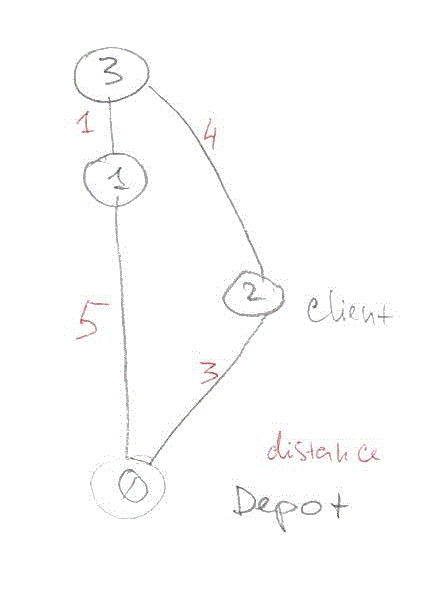 3
1
4
1
2
client
5
3
distance
0
Depot